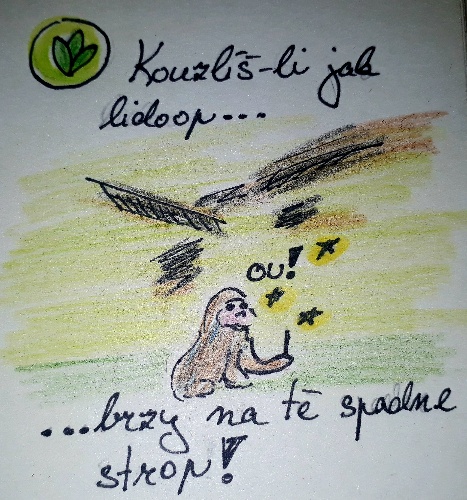 Kouzlíš-li jak
lidoop...
OU!
...brzy na tě spadne
strop!